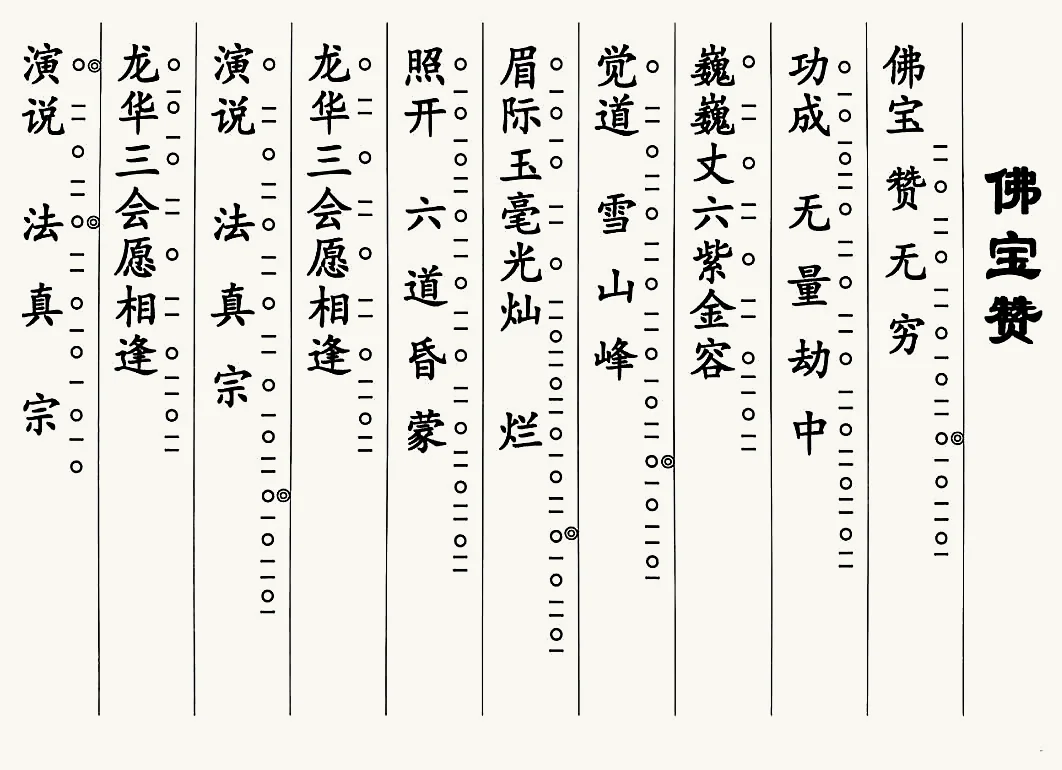 佛宝赞
佛宝赞无穷
功成无量劫中
巍巍丈六紫金容
觉道雪山峰
眉际玉毫光灿烂
照开六道昏蒙
龙华三会愿相逢
演说法真宗
龙华三会愿相逢
演说法真宗